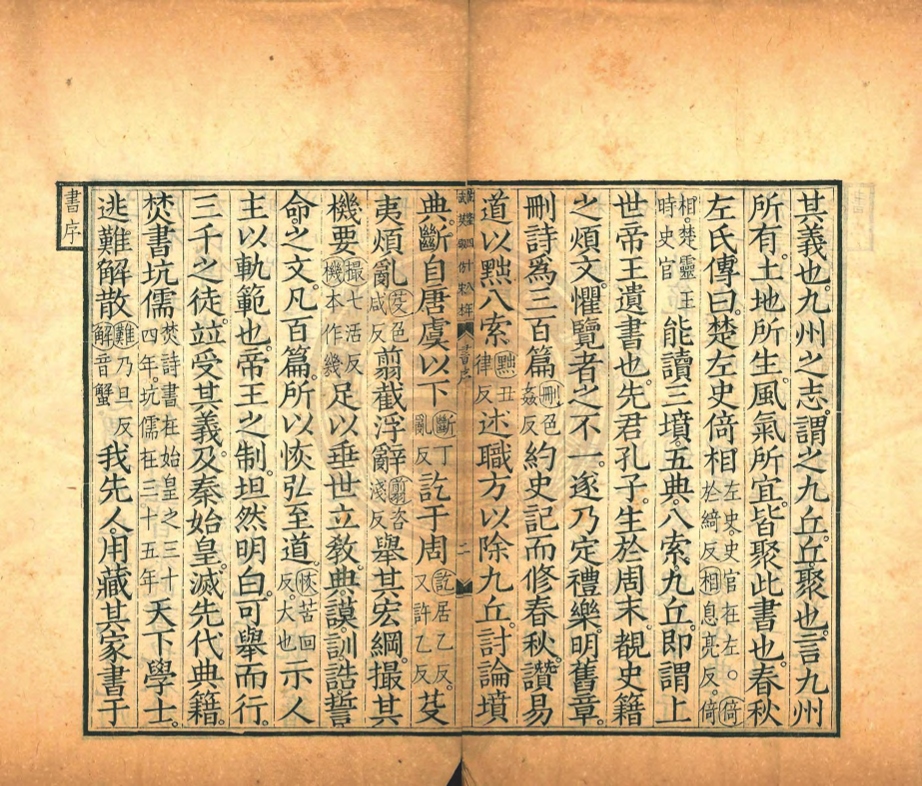 其義也九州之志謂之九丘丘聚也言九州
所有土地所生風氣所宜皆聚此書也春秋
左氏傳曰楚左史倚相左史史官在左。倚於綺反相息亮反。倚
相楚靈王時史官能讀三墳五典八索九丘即謂上
世帝王遺書也先君孔子生於周末覩史籍
之煩文懼覽者之不一遂乃定禮樂明舊章
刪詩爲三百篇刪色姦反約史記而修春秋讚易
道以黜八索黜丑律反述職方以除九丘討論墳
典斷自唐虞以下斷丁亂反訖于周訖居乙反。又許乙反芟
夷煩亂芟色咸反翦截浮辭翦咨淺反舉其宏綱撮其
機要撮七活反機本作幾足以垂世立教典謨訓誥誓
命之文凡百篇所以恢弘至道恢苦回反。大也示人
主以軌範也帝王之制坦然明白可舉而行
三千之徒竝受其義及秦始皇滅先代典籍
焚書坑儒焚詩書在始皇之三十四年坑儒在三十五年天下學士
逃難解散難乃旦反解音蟹我先人用藏其家書于
書序
書序
二